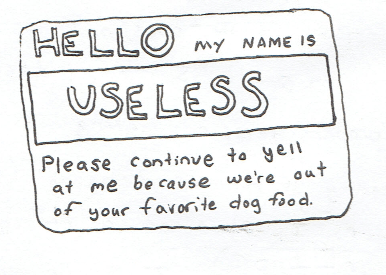 HELLO MY NAME IS
USELESS
Please continue to yell
at me because we're out
of your favorite dog food.